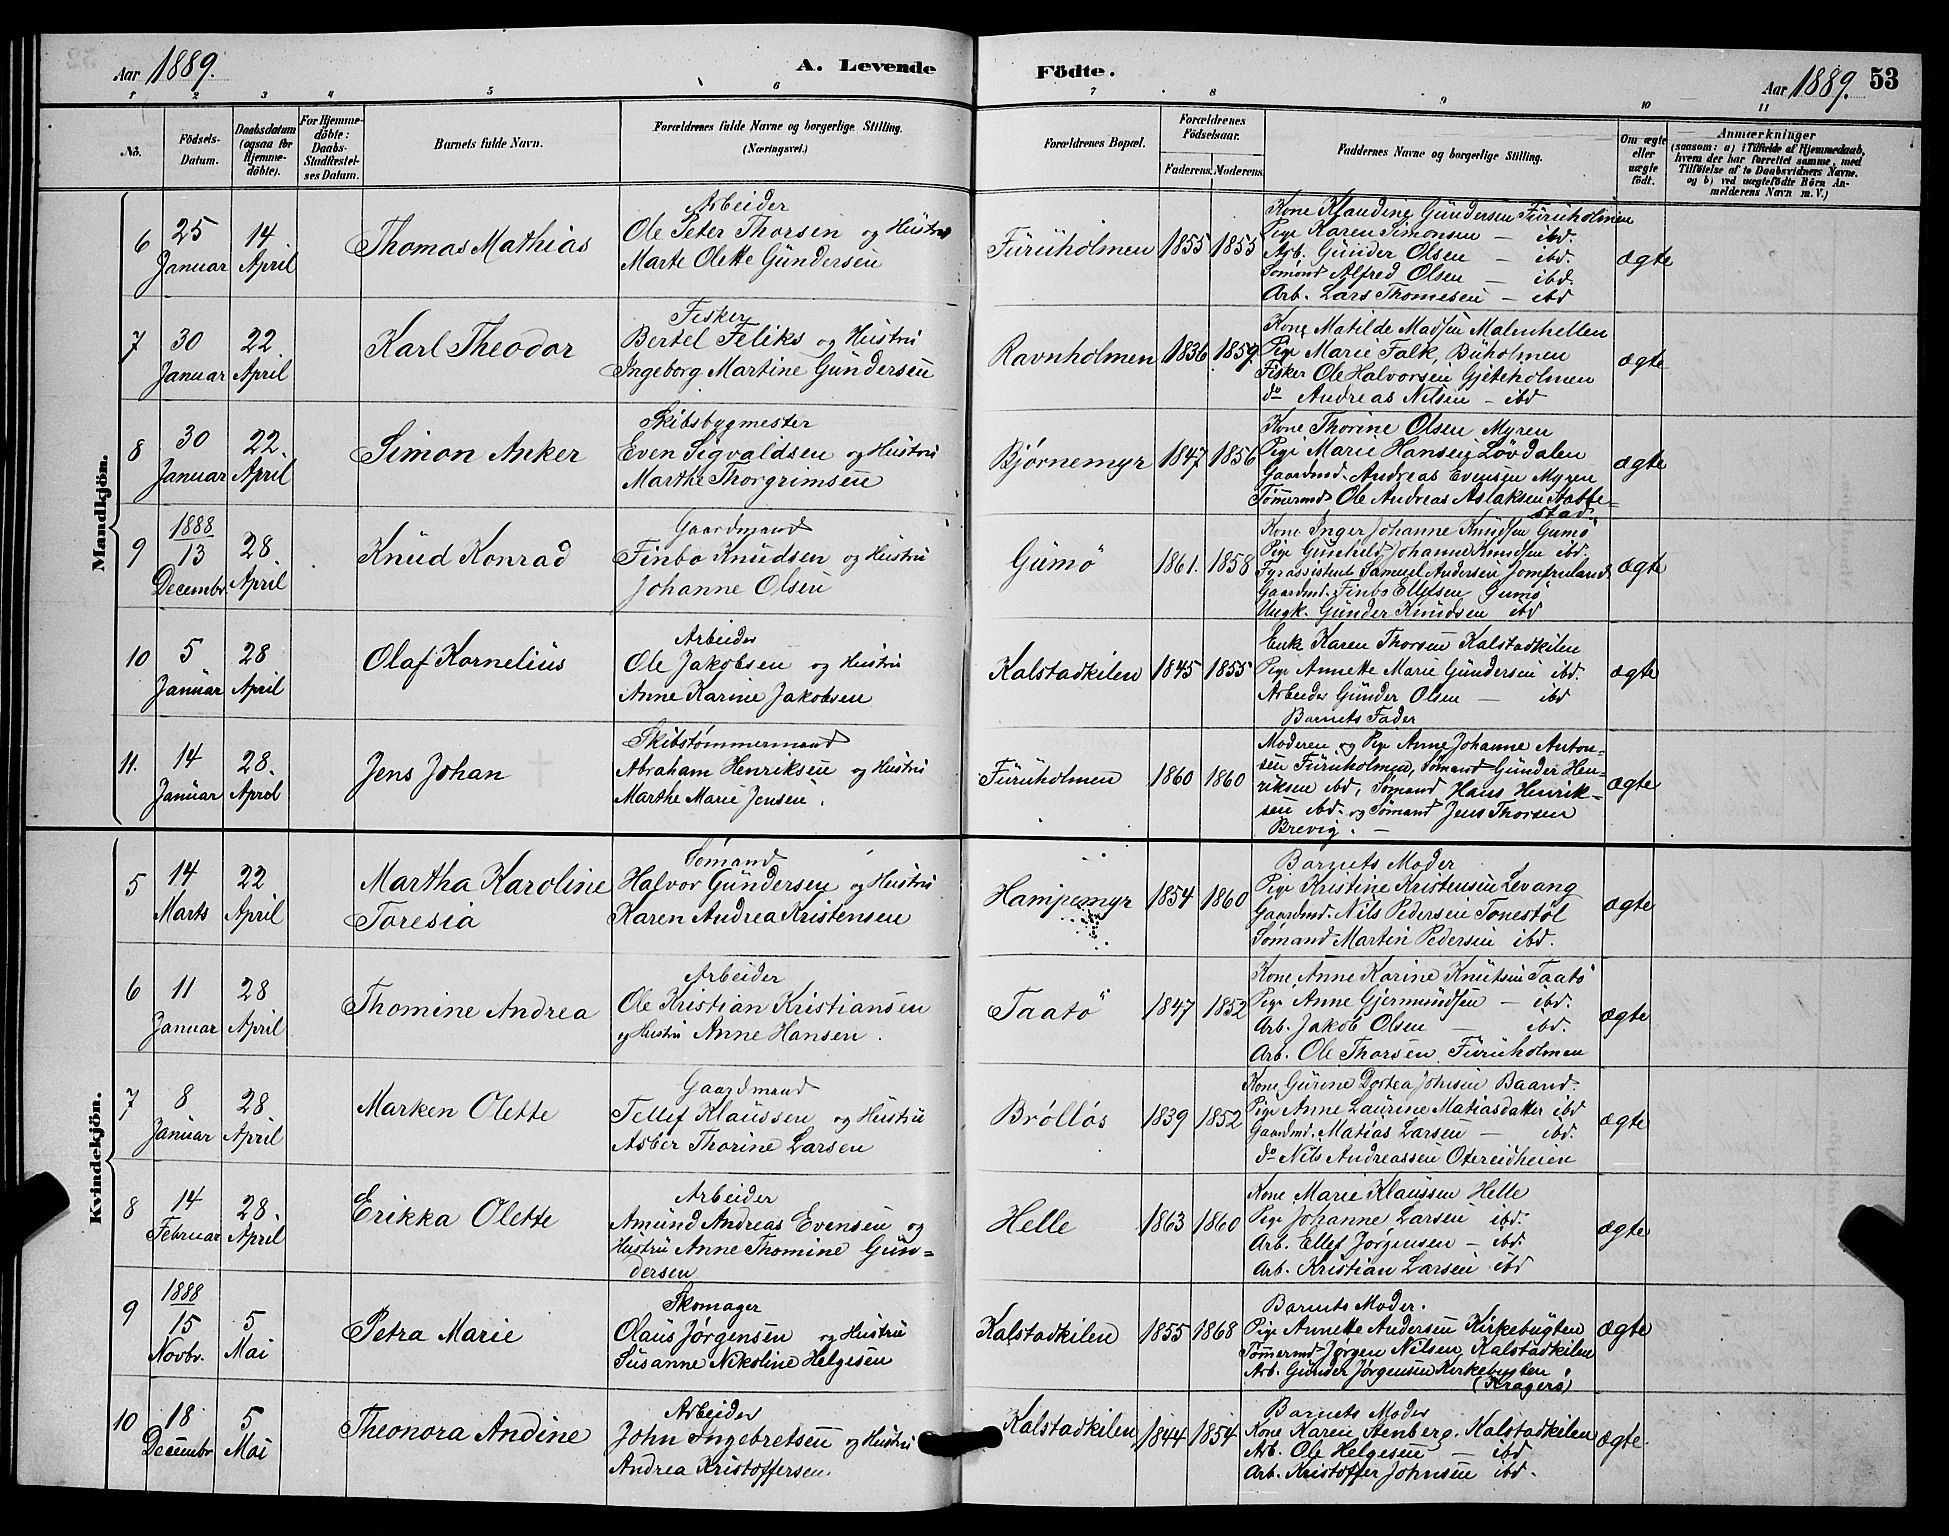 Aar 1889.
A. Levende
Födte.
Aar 1889.
53
1 2 3 4 5 6 7 8 9 10 11
No.
Födsels-
Datum.
Daabsdatum
(ogsaa for
Hjemme-
döbte).
For Hjemme-
döbte:
Daabs-
Stadfæstel-
ses Datum.
Barnets fulde Navn.
Forældrenes fulde Navne og borgerlige Stilling.
(Næringsvei.)
Forældrenes Bopæl.
Forældrenes
Födselsaar.
Faderens. Moderens.
Faddernes Navne og borgerlige Stilling.
Om ægte
eller
uægte
födt.
Anmærkninger
(saasom: a) i Tilfælde af Hjemmedaab,
hvem der har forrettet samme, med
Tilföielse af to Daabsvidners Navne.
og b) ved uægtefödte Börn An-
melderens Navn m. V.)
Mandkjön.
6
25
Januar
14
April
Thomas Mathias
Arbeider
Ole Peter Thorsen og Hustru
Marte Olette Gundersen
Furuholmen
1855
1855
Kone Klaudine Gundersen Furuholmen
Pige Karen Simonsen — ibd.
Arb. Gunder Olsen — ibd.
Sømand Alfred Olsen — ibd.
Arb. Lars Thomesen — ibd
ægte
7
30
Januar
22
April
Karl Theodor
Fisker
Bertel Feliks og Hustru
Ingeborg Martine Gundersen
Ravnholmen
1836
1859
Kone Matilde Madsen Malmhellen
Pige Marie Falk, Buholmen
Fisker Ole Halvorsen Gjeteholmen
do Andreas Nilsen — ibd
ægte
8
30
Januar
22
April
Simon Anker
Skibsbygmester
Even Sigvaldsen og Hustru
Marthe Thorgrimsen
Bjørnemyr
1847
1856
Kone Thorine Olsen Myren
Pige Marie Hansen Løvdalen
Gaardmd. Andreas Evensen Myren
Tømermd Ole Andreas Aslaksen Stabbe-
stad.
ægte
9
1888
13
Decembr.
28
April
Knud Konrad
Gaardmand
Finbo Knudsen og Hustru
Johanne Olsen
Gumø
1861.
1858
Kone Inger Johanne Knudsen Gumø
Pige Gunhild Johanne Knudsen ibd.
Fyrassistent Samuel Andersen Jomfruland
Gaardmd. Finbo Ellefsen Gumø
Ungk. Gunder Knudsen ibd
ægte
10
5
Januar
28
April
Olaf Kornelius
Arbeider
Ole Jakobsen og Hustru
Anne Karine Jakobsen
Kalstadkilen
1845
1855
Enke Karen Thorsen Kalstadkilen
Pige Annette Marie Gundersen ibd.
Arbeider Gunder Olsen — ibd
Barnets Fader
ægte
11.
14
Januar
28.
April
Jens Johan
Skibstømmermand
Abraham Henriksen og Hustru
Marthe Marie Jensen.
Furuholmen
1860
1860
Moderen og Pige Anne Johanne Anton-
sen Furuholmen, Sømand Gunder Hen-
riksen ibd, Sømand Hans Henrik-
sen ibd. og Sømand Jens Thorsen
Brevig. —
ægte
Kvindekjön.
5
14
Marts
22
April
Martha Karoline
Toresia
Sømand
Halvor Gundersen og Hustru
Karen Andrea Kristensen
Hampemyr
1854
1860
Barnets Moder
Pige Kristine Kristensen Levang
Gaardmd. Nils Pedersen Tonestøl
Sømand Martin Pedersen ibd.
ægte
6
11
Januar
28
April
Thomine Andrea
Arbeider
Ole Kristian Kristiansen
og Hustru Anne Hansen.
Taatø
1847
1852
Kone Anne Karine Knutsen Taatø
Pige Anne Gjermundsen — ibd.
Arb. Jakob Olsen — ibd.
Arb. Ole Thorsen Furuholmen
ægte
7
8
Januar
28.
April
Marken Olette
Gaardmand
Tellef Klaussen og Hustru
Asber Thorine Larsen
Brølløs
1839
1852
Kone Gurine Dortea Johnsen Baard.
Pige Anne Laurine Matiasdatter ibd
Gaardmd. Matias Larsen — ibd.
do Nils Andreassen Otereidheien
ægte
8
14
Februar
28.
April
Erikka Olette
Arbeider
Amund Andreas Evensen og
Hustru Anne Thomine Gun-
dersen
Helle
1863
1860
Kone Marie Klaussen Helle
Pige Johanne Larsen ibd.
Arb. Ellef Jørgensen — ibd.
Arb. Kristian Larsen ibd
ægte
9
1888
15
Novbr.
5
Mai
Petra Marie
Skomager
Olaus Jørgensen og Hustru
Susanne Nikoline Helgesen
Kalstadkilen
1855
1868
Barnets Moder.
Pige Annette Andersen Kirkebugten
Tømermd Jørgen Nilsen, Kalstadkilen
Arb. Gunder Jørgensen Kirkebugten
(Kragerø)
ægte
10
18
Decembr
5
Mai
Theonora Andine
Arbeider
John Ingebretsen og Hustru
Andrea Kristoffersen
Kalstadkilen
1844
1854
Barnets Moder
Kone Karen Stenberg, Kalstadkilen
Arb. Ole Helgesen — ibd
Arb. Kristoffer Johnsen ibd.
ægte.